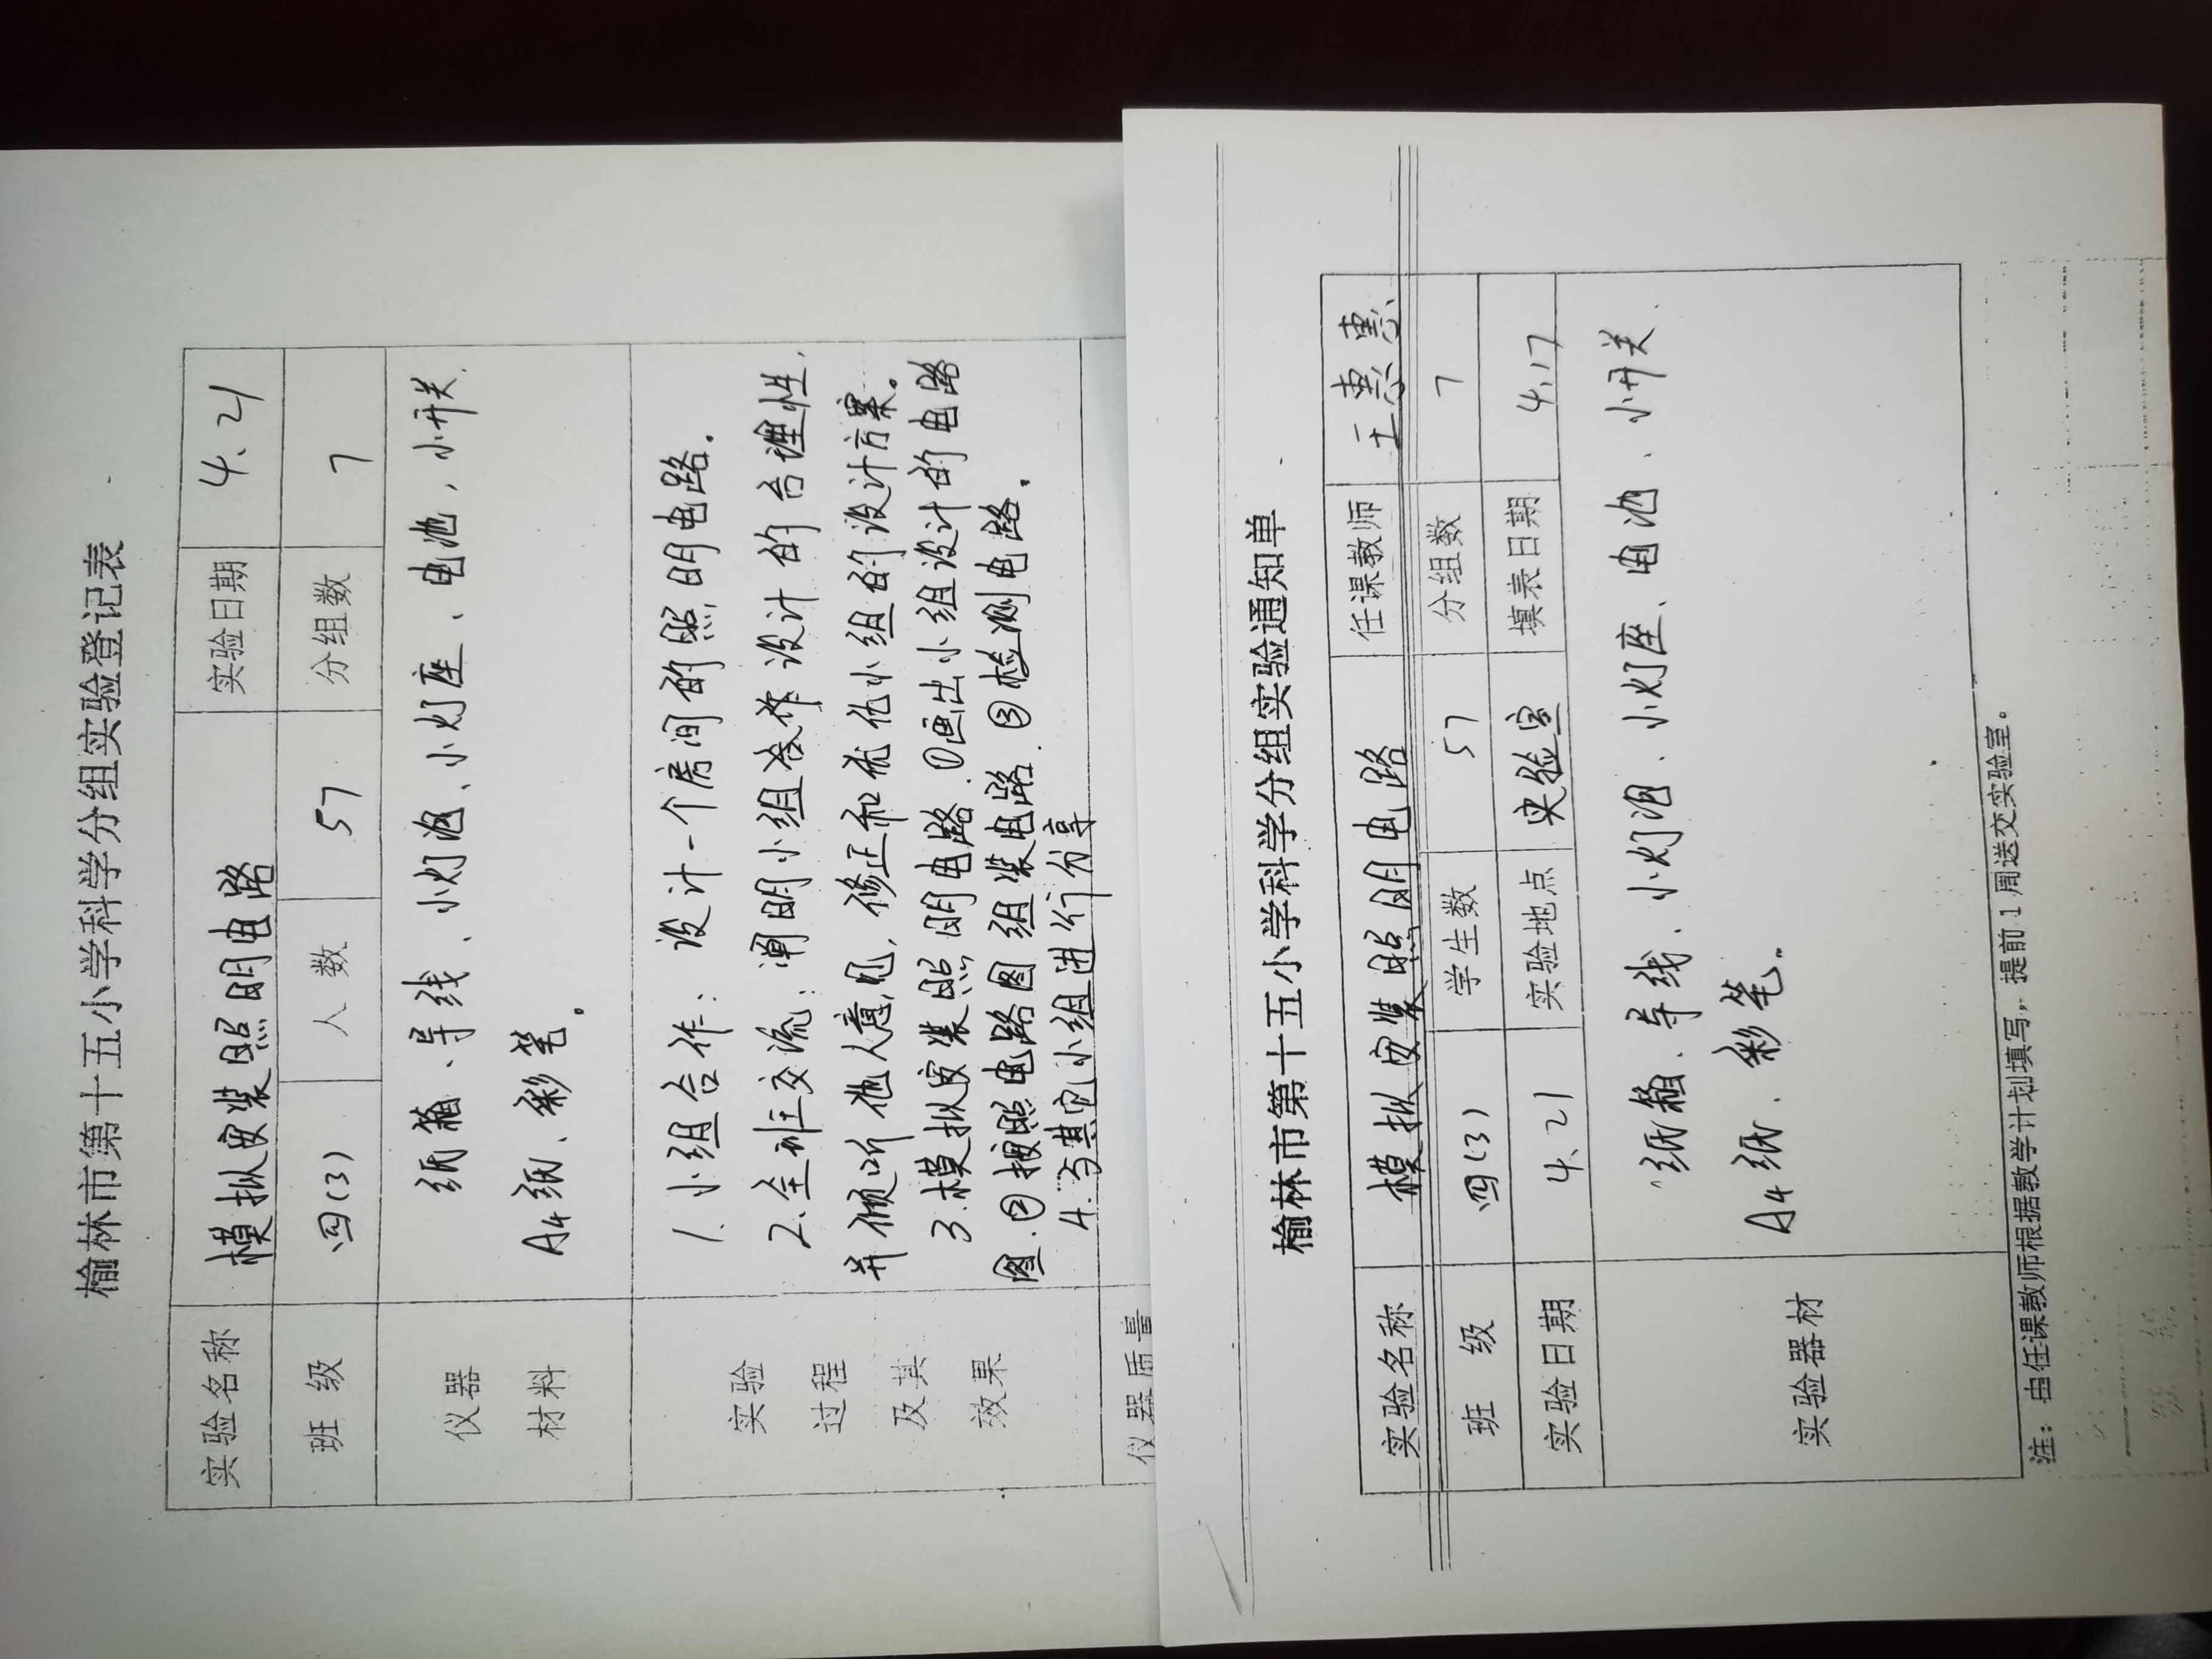 榆林市第十五小学科学分组实验登记表
实验名称 模拟安装照明电路 实验日期 4、21
班 级 四(3) 人 数 57 分组数 7
仪器
材料
纸箱、导线、小灯泡、小灯座、电池,小开关、
A4纸、彩笔。
实验
过程
及其
效果
1.小组合作:设计一个房间的照明电路。
2.全班交流:阐明小组合作设计的合理性,
并倾听他人意见,修正和优化小组的设计方案。
3.模拟安装照明电路.①画出小组设计的电路
图.②按照电路图组装电路.③检测电路。
4.与其它小组进行分享
仪器质量
榆林市第十五小学科学分组实验通知单
实验名称 模拟安装照明电路 任课教师 王惠惠
班 级 四(3) 学生数 57 分组数 7
实验日期 4、21 实验地点 实验室 填表日期 4、17
实验器材
纸箱、导线、小灯泡、小灯座、电池、小开关、
A4纸、彩笔。
注:由任课教师根据教学计划填写,提前1周送交实验室。